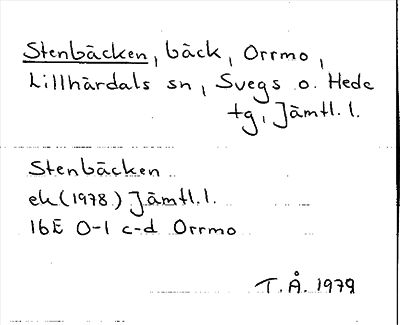 Stenbäcken, bäck, Orrmo,
Lillhärdals sn, Svegs o. Hede
tg, Jämtl. l.
Stenbäcken
ek (1978) Jämtl. l.
16E 0-1 c-d Orrmo
T. Å. 1979